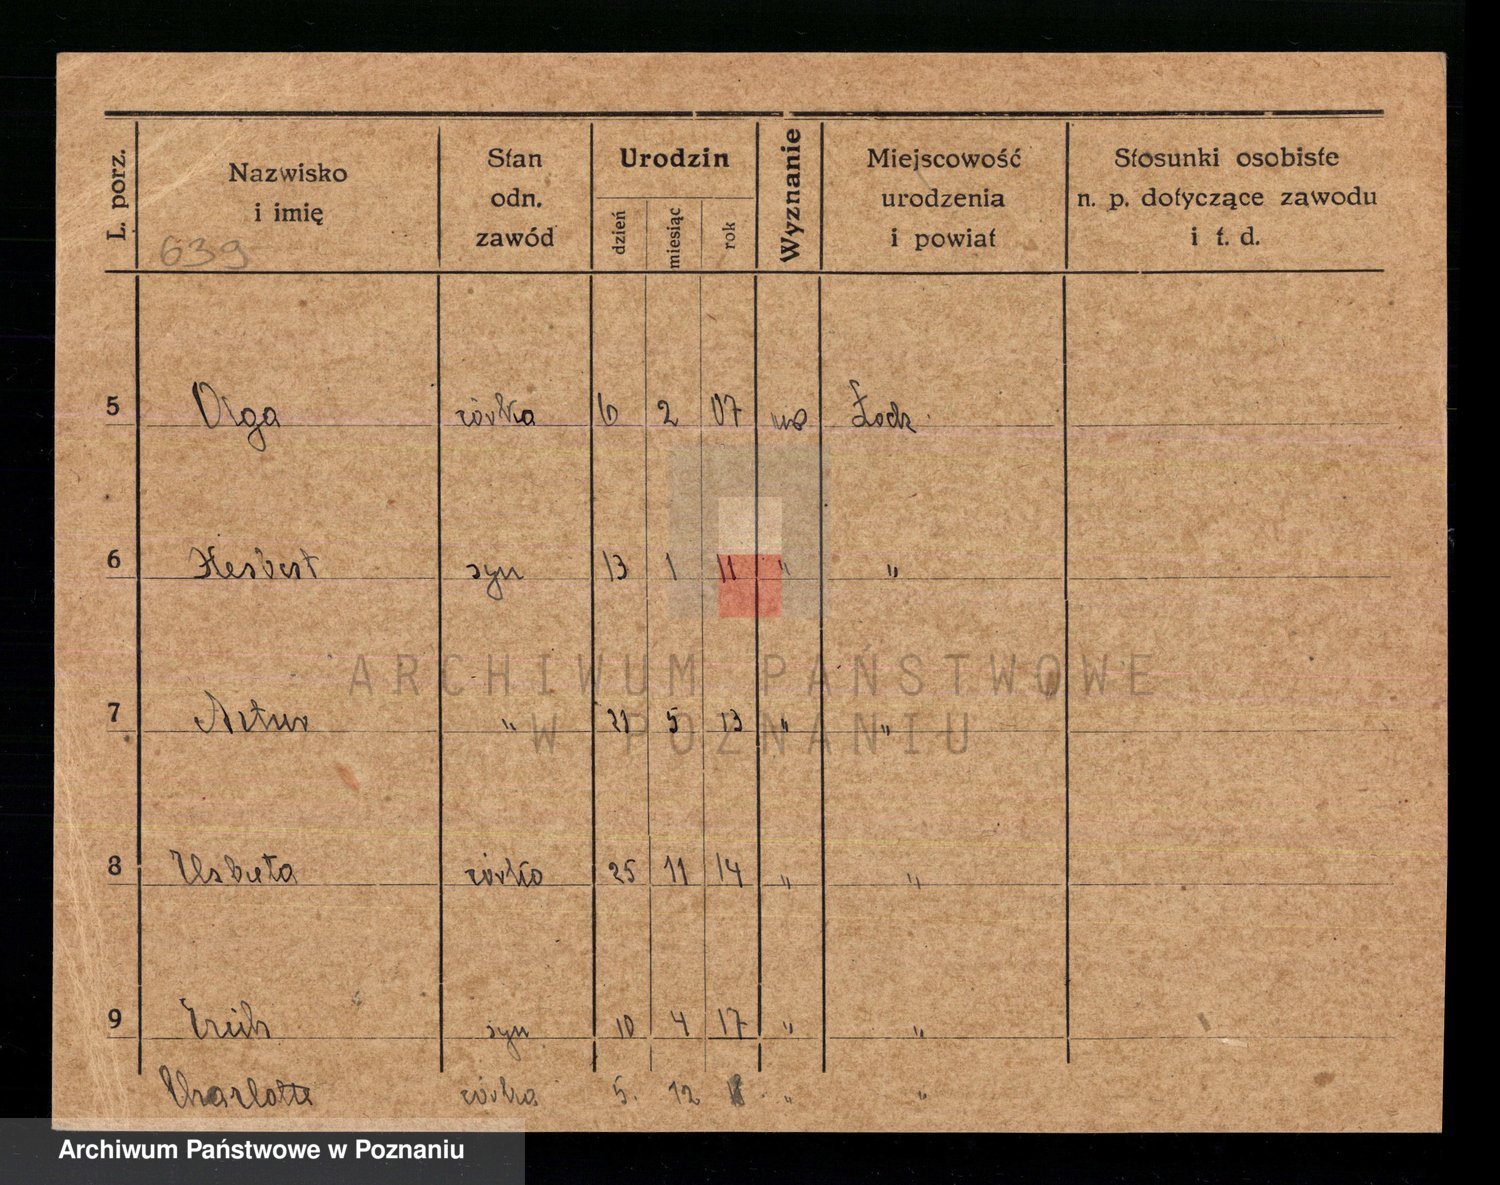 L. porz.
Nazwisko
i imię
Stan
odn.
zawód
Urodzin
dzień
miesiąc
rok
Wyznanie
Miejscowość
urodzenia
i powiat
Stosunki osobiste
n. p. dotyczące zawodu
i t. d.
639
5 Olga córka 6 2 07 Łodz
6 Herbert syn 13 1 11 " "
7 Artur " 21 5 13 " "
ARCHIWUM PAŃSTWOWE
W POZNANIU
8 Elsbeta córka 25 11 14 " "
9 Erich syn 10 4 17 " "
Charlotte córka 5. 12 " "
Archiwum Państwowe w Poznaniu